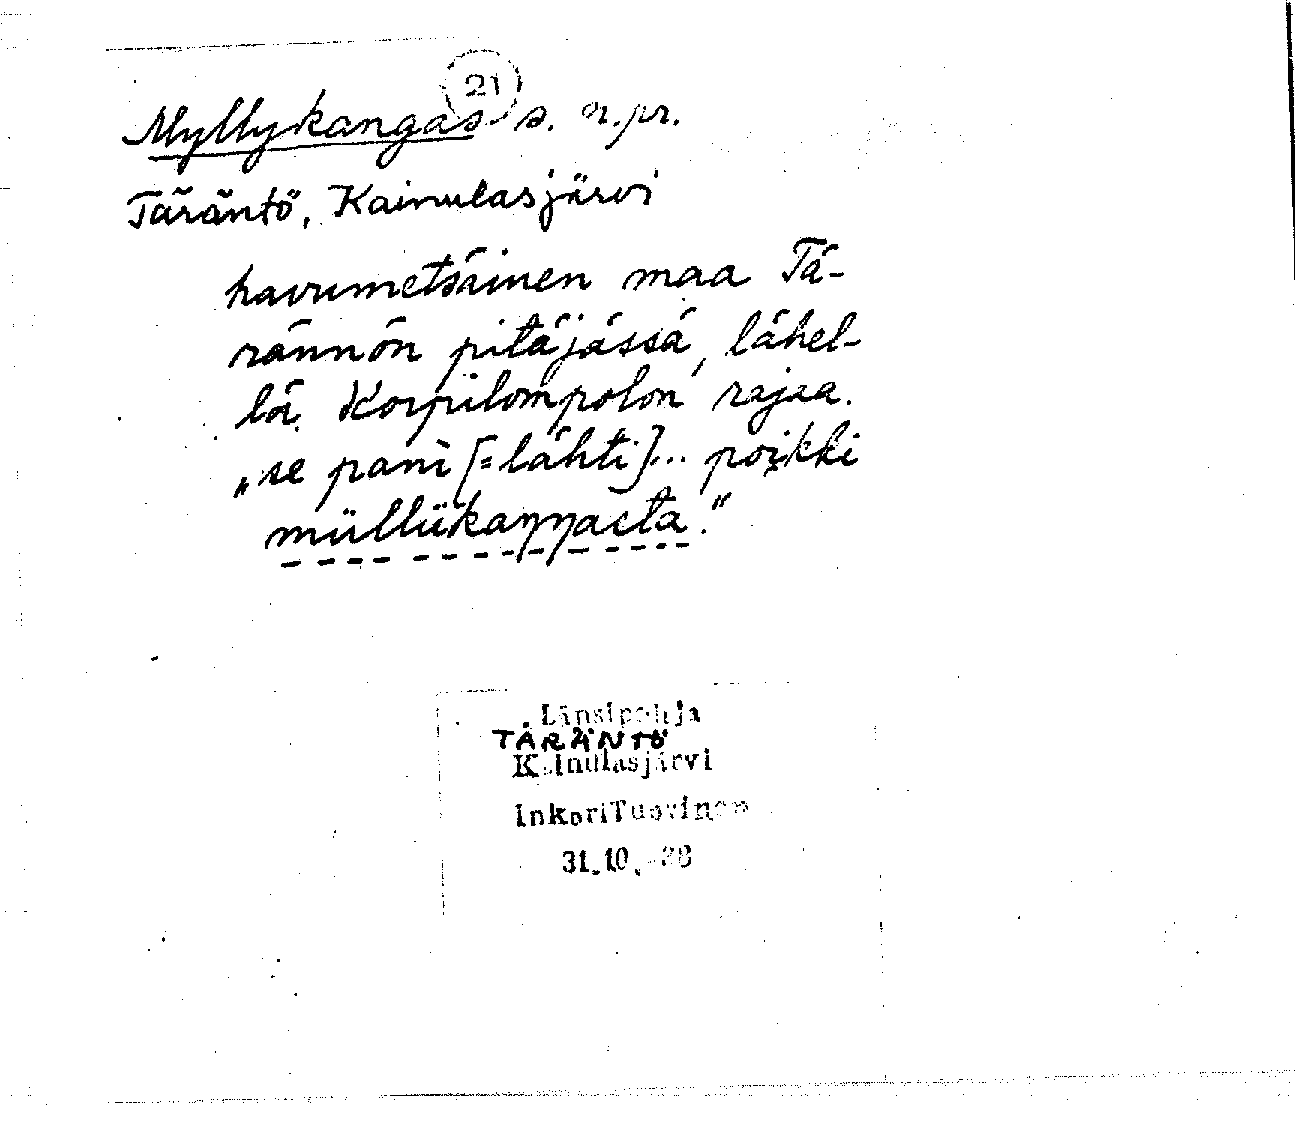 21
Myllykangas s. n.pr.
Täräntö, Kainulasjärvi
havumetsäinen maa Tä-
rännön pitäjässä, lähel-
lä Korpilompolon rajaa.
„se pani [=lähti]... poikki
müllükaŋŋasta.“
Länsipohja
TÄRÄNTÖ
Kainulasjärvi
Inkeri Tuovinen
31.10.